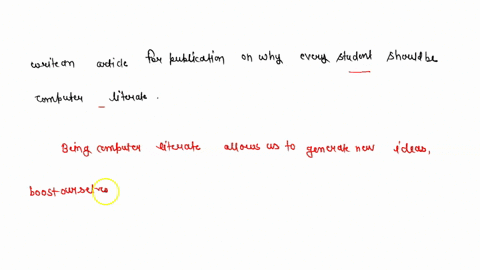 write an article for publication on why every student should be
computer literate.
Being computer literate allows us to generate new ideas,
boost our sel